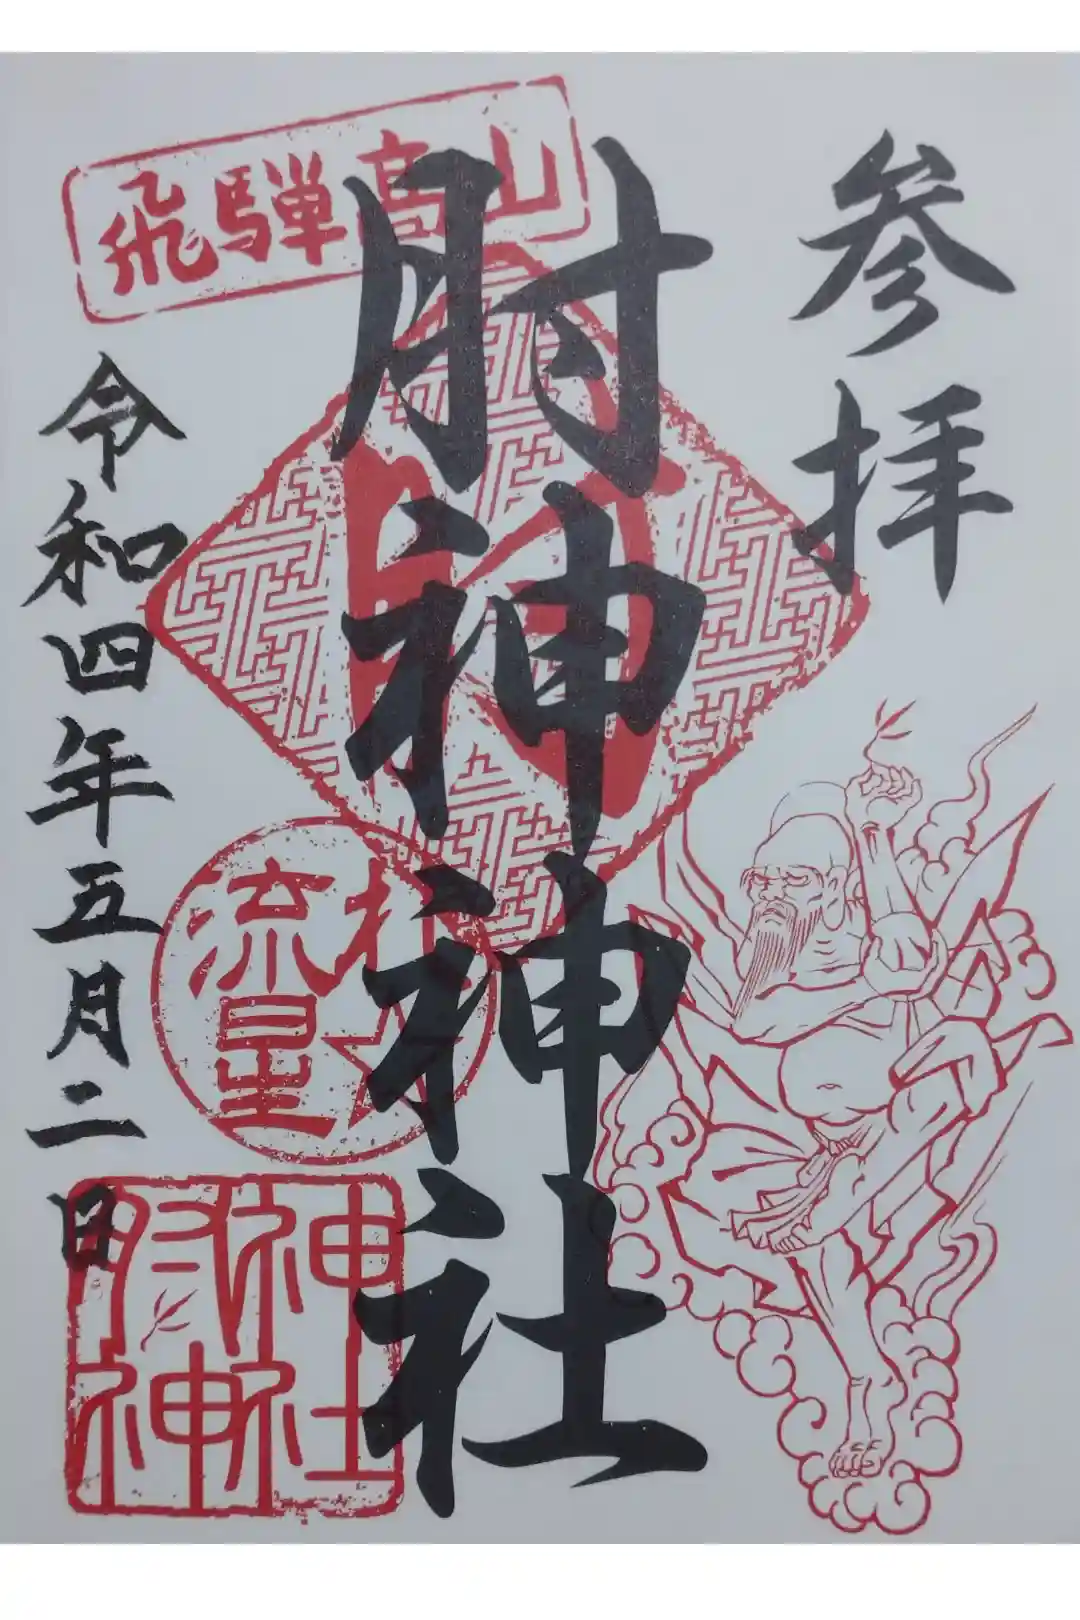 参拝
飛騨高山
肘神神社
令和四年五月二日
流星
肘神
神社